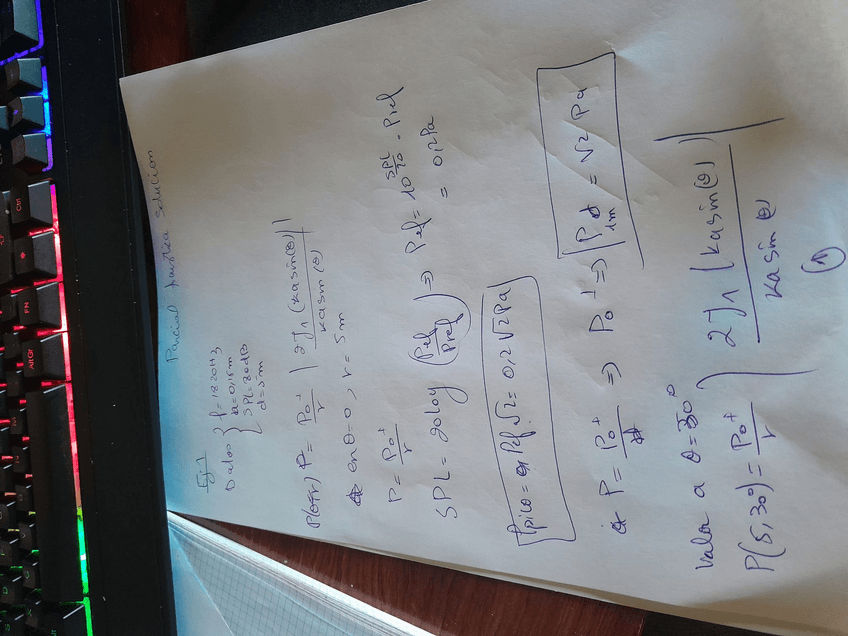 Parcial acústica solución
Ej 1
Datos { f = 1820Hz
a = 0,15m
SPL = 80dB
d = 5m
P(θ,r) P = P₀⁺/r | 2J₁(ka sin(θ)) / ka sin(θ) |
en θ=0, r = 5m
P = P₀⁺/r
SPL = 20 log (Pef/Pref) ⇒ Pef = 10^(SPL/20) · Pref
= 0,2Pa
Ppico = Pef √2 = 0,2√2 Pa
P = P₀⁺/d ⇒ P₀⁺ ⇒ P 1m = √2 Pa
Valor a θ = 30°
P(5,30°) = P₀⁺/r | 2J₁(ka sin(θ)) / ka sin θ |
①
Ctrl
FN
Alt Gr